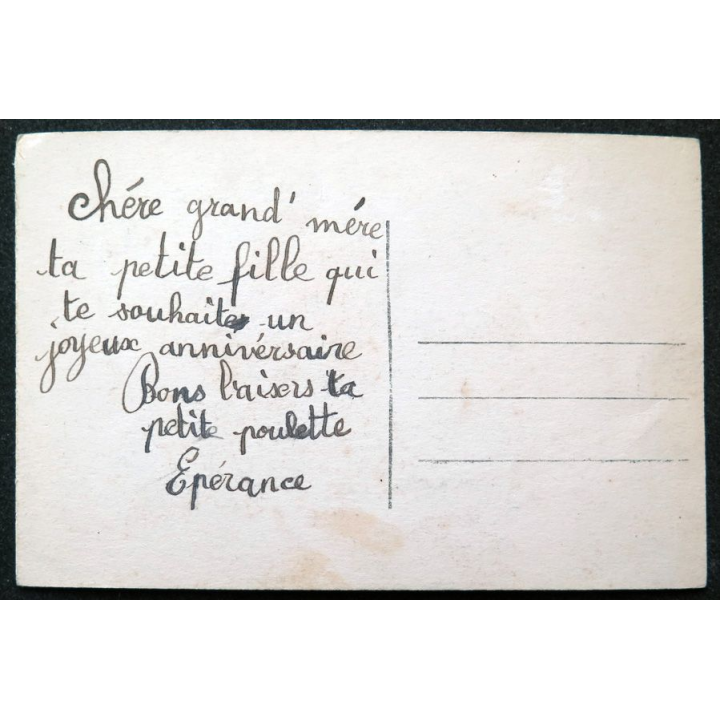 Chére grand' mére
ta petite fille qui
te souhaite un
joyeux annivérsaire
Bons baisers ta
petite poulette
Epérance